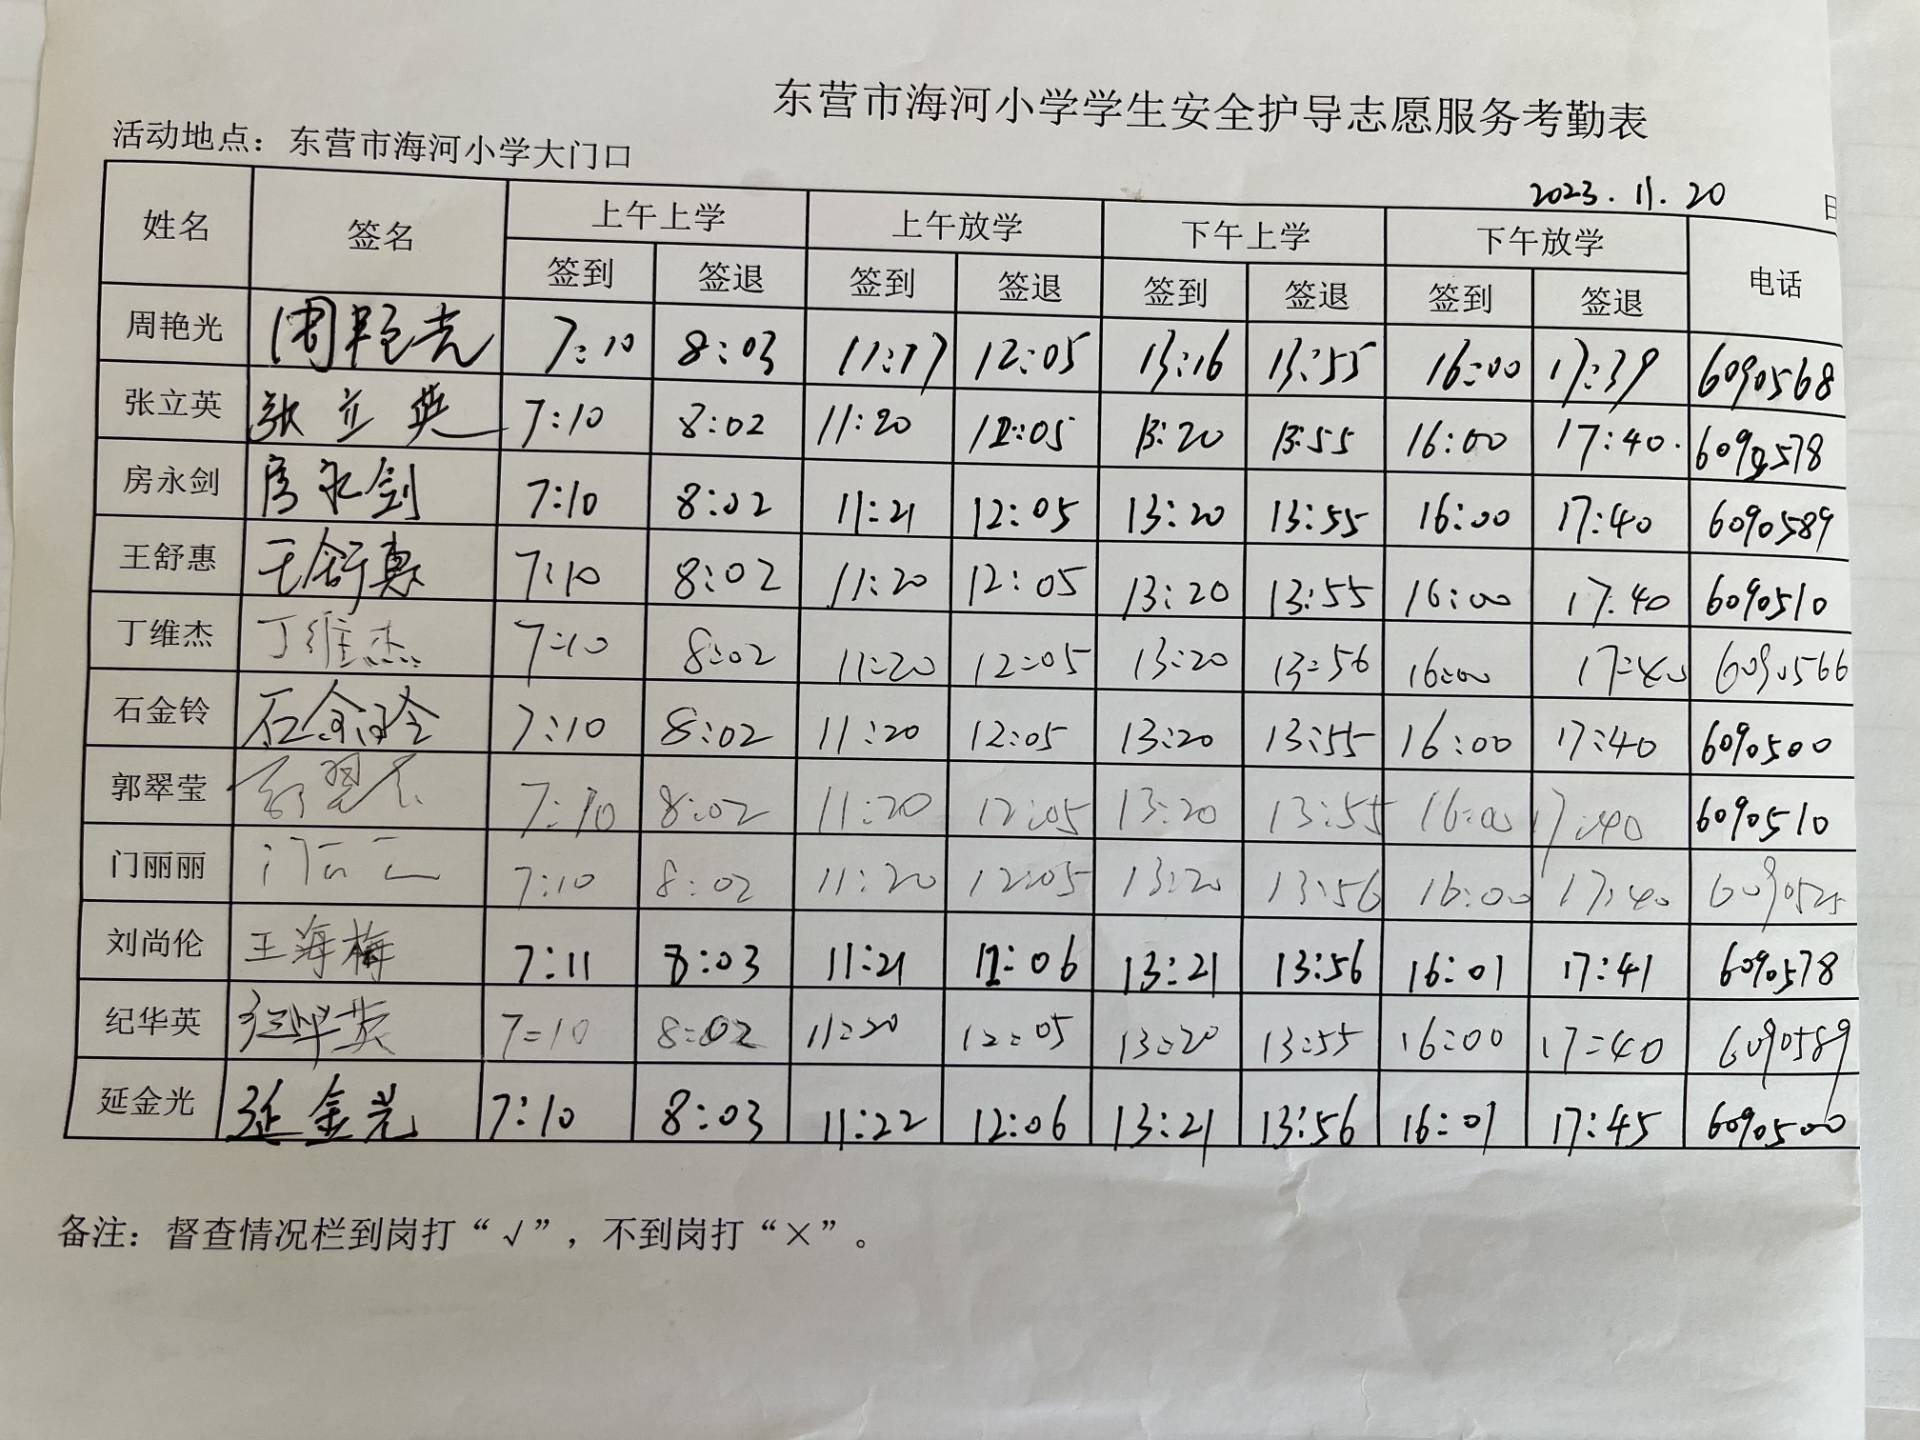 东营市海河小学学生安全护导志愿服务考勤表
活动地点：东营市海河小学大门口
2023.11.20 日
姓名 签名 上午上学 上午放学 下午上学 下午放学 电话
签到 签退 签到 签退 签到 签退 签到 签退
周艳光 周艳光 7:10 8:03 11:17 12:05 13:16 13:55 16:00 17:39 6090568
张立英 张立英 7:10 8:02 11:20 12:05 13:20 13:55 16:00 17:40. 6090578
房永剑 房永剑 7:10 8:02 11:21 12:05 13:20 13:55 16:00 17:40 6090589
王舒惠 王舒惠 7:10 8:02 11:20 12:05 13:20 13:55 16:00 17:40 6090510
丁维杰 丁维杰 7:10 8:02 11:20 12:05 13:20 13:56 16:00 17:40 6090566
石金铃 石金铃 7:10 8:02 11:20 12:05 13:20 13:55 16:00 17:40 6090500
郭翠莹 7:10 8:02 11:20 12:05 13:20 13:55 16:00 17:40 6090510
门丽丽 7:10 8:02 11:20 12:05 13:20 13:56 16:00 17:40 6090525
刘尚伦 王海梅 7:11 8:03 11:21 12:06 13:21 13:56 16:01 17:41 6090578
纪华英 纪华英 7:10 8:02 11:20 12:05 13:20 13:55 16:00 17:40 6090589
延金光 延金光 7:10 8:03 11:22 12:06 13:21 13:56 16:01 17:45 6090500
备注：督查情况栏到岗打“√”，不到岗打“×”。